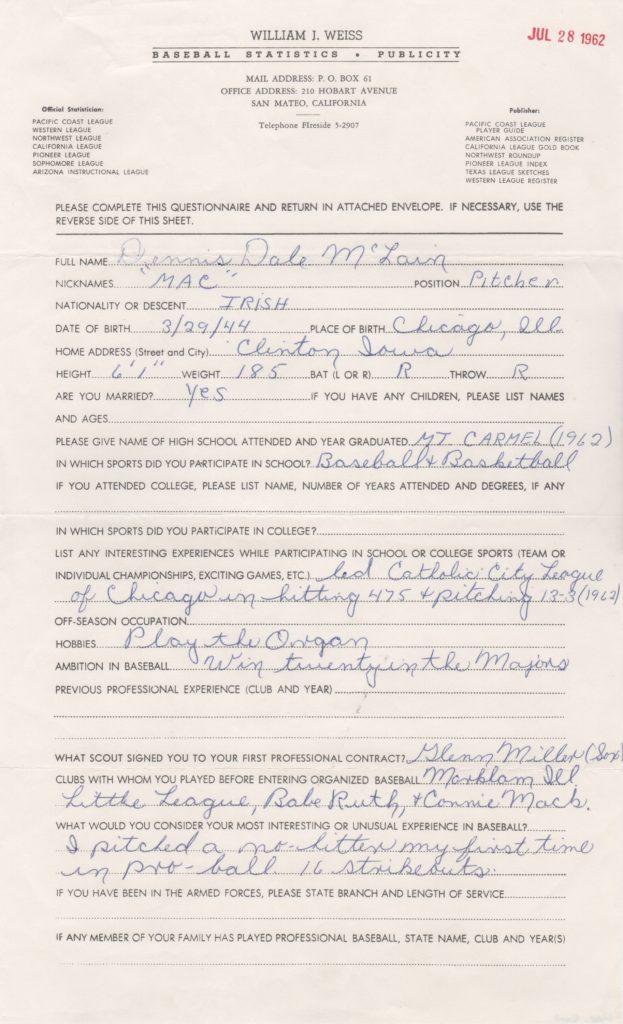 WILLIAM J. WEISS
BASEBALL STATISTICS • PUBLICITY
JUL 28 1962
MAIL ADDRESS: P. O. BOX 61
OFFICE ADDRESS: 210 HOBART AVENUE
SAN MATEO, CALIFORNIA
Telephone FIreside 5-2907
Official Statistician:
PACIFIC COAST LEAGUE
WESTERN LEAGUE
NORTHWEST LEAGUE
CALIFORNIA LEAGUE
PIONEER LEAGUE
SOPHOMORE LEAGUE
ARIZONA INSTRUCTIONAL LEAGUE
Publisher:
PACIFIC COAST LEAGUE
PLAYER GUIDE
AMERICAN ASSOCIATION REGISTER
CALIFORNIA LEAGUE GOLD BOOK
NORTHWEST ROUNDUP
PIONEER LEAGUE INDEX
TEXAS LEAGUE SKETCHES
WESTERN LEAGUE REGISTER
PLEASE COMPLETE THIS QUESTIONNAIRE AND RETURN IN ATTACHED ENVELOPE. IF NECESSARY, USE THE
REVERSE SIDE OF THIS SHEET.
FULL NAME Dennis Dale McLain
NICKNAMES "MAC" POSITION Pitcher
NATIONALITY OR DESCENT IRISH
DATE OF BIRTH 3/29/44 PLACE OF BIRTH Chicago, Ill.
HOME ADDRESS (Street and City) Clinton Iowa
HEIGHT 6'1" WEIGHT 185 BAT (L OR R) R THROW R
ARE YOU MARRIED? Yes IF YOU HAVE ANY CHILDREN, PLEASE LIST NAMES
AND AGES
PLEASE GIVE NAME OF HIGH SCHOOL ATTENDED AND YEAR GRADUATED MT. CARMEL (1962)
IN WHICH SPORTS DID YOU PARTICIPATE IN SCHOOL? Baseball & Basketball
IF YOU ATTENDED COLLEGE, PLEASE LIST NAME, NUMBER OF YEARS ATTENDED AND DEGREES, IF ANY
IN WHICH SPORTS DID YOU PARTICIPATE IN COLLEGE?
LIST ANY INTERESTING EXPERIENCES WHILE PARTICIPATING IN SCHOOL OR COLLEGE SPORTS (TEAM OR
INDIVIDUAL CHAMPIONSHIPS, EXCITING GAMES, ETC.) Led Catholic City League
of Chicago in hitting 475 & pitching 13-3 (1962)
OFF-SEASON OCCUPATION
HOBBIES Play the Organ
AMBITION IN BASEBALL Win twenty in the Majors
PREVIOUS PROFESSIONAL EXPERIENCE (CLUB AND YEAR)
WHAT SCOUT SIGNED YOU TO YOUR FIRST PROFESSIONAL CONTRACT? Glenn Miller (Sox)
CLUBS WITH WHOM YOU PLAYED BEFORE ENTERING ORGANIZED BASEBALL Markham Ill
Little League, Babe Ruth, & Connie Mack.
WHAT WOULD YOU CONSIDER YOUR MOST INTERESTING OR UNUSUAL EXPERIENCE IN BASEBALL?
I pitched a no-hitter my first time
in pro-ball. 16 strikeouts.
IF YOU HAVE BEEN IN THE ARMED FORCES, PLEASE STATE BRANCH AND LENGTH OF SERVICE
IF ANY MEMBER OF YOUR FAMILY HAS PLAYED PROFESSIONAL BASEBALL, STATE NAME, CLUB AND YEAR(S)